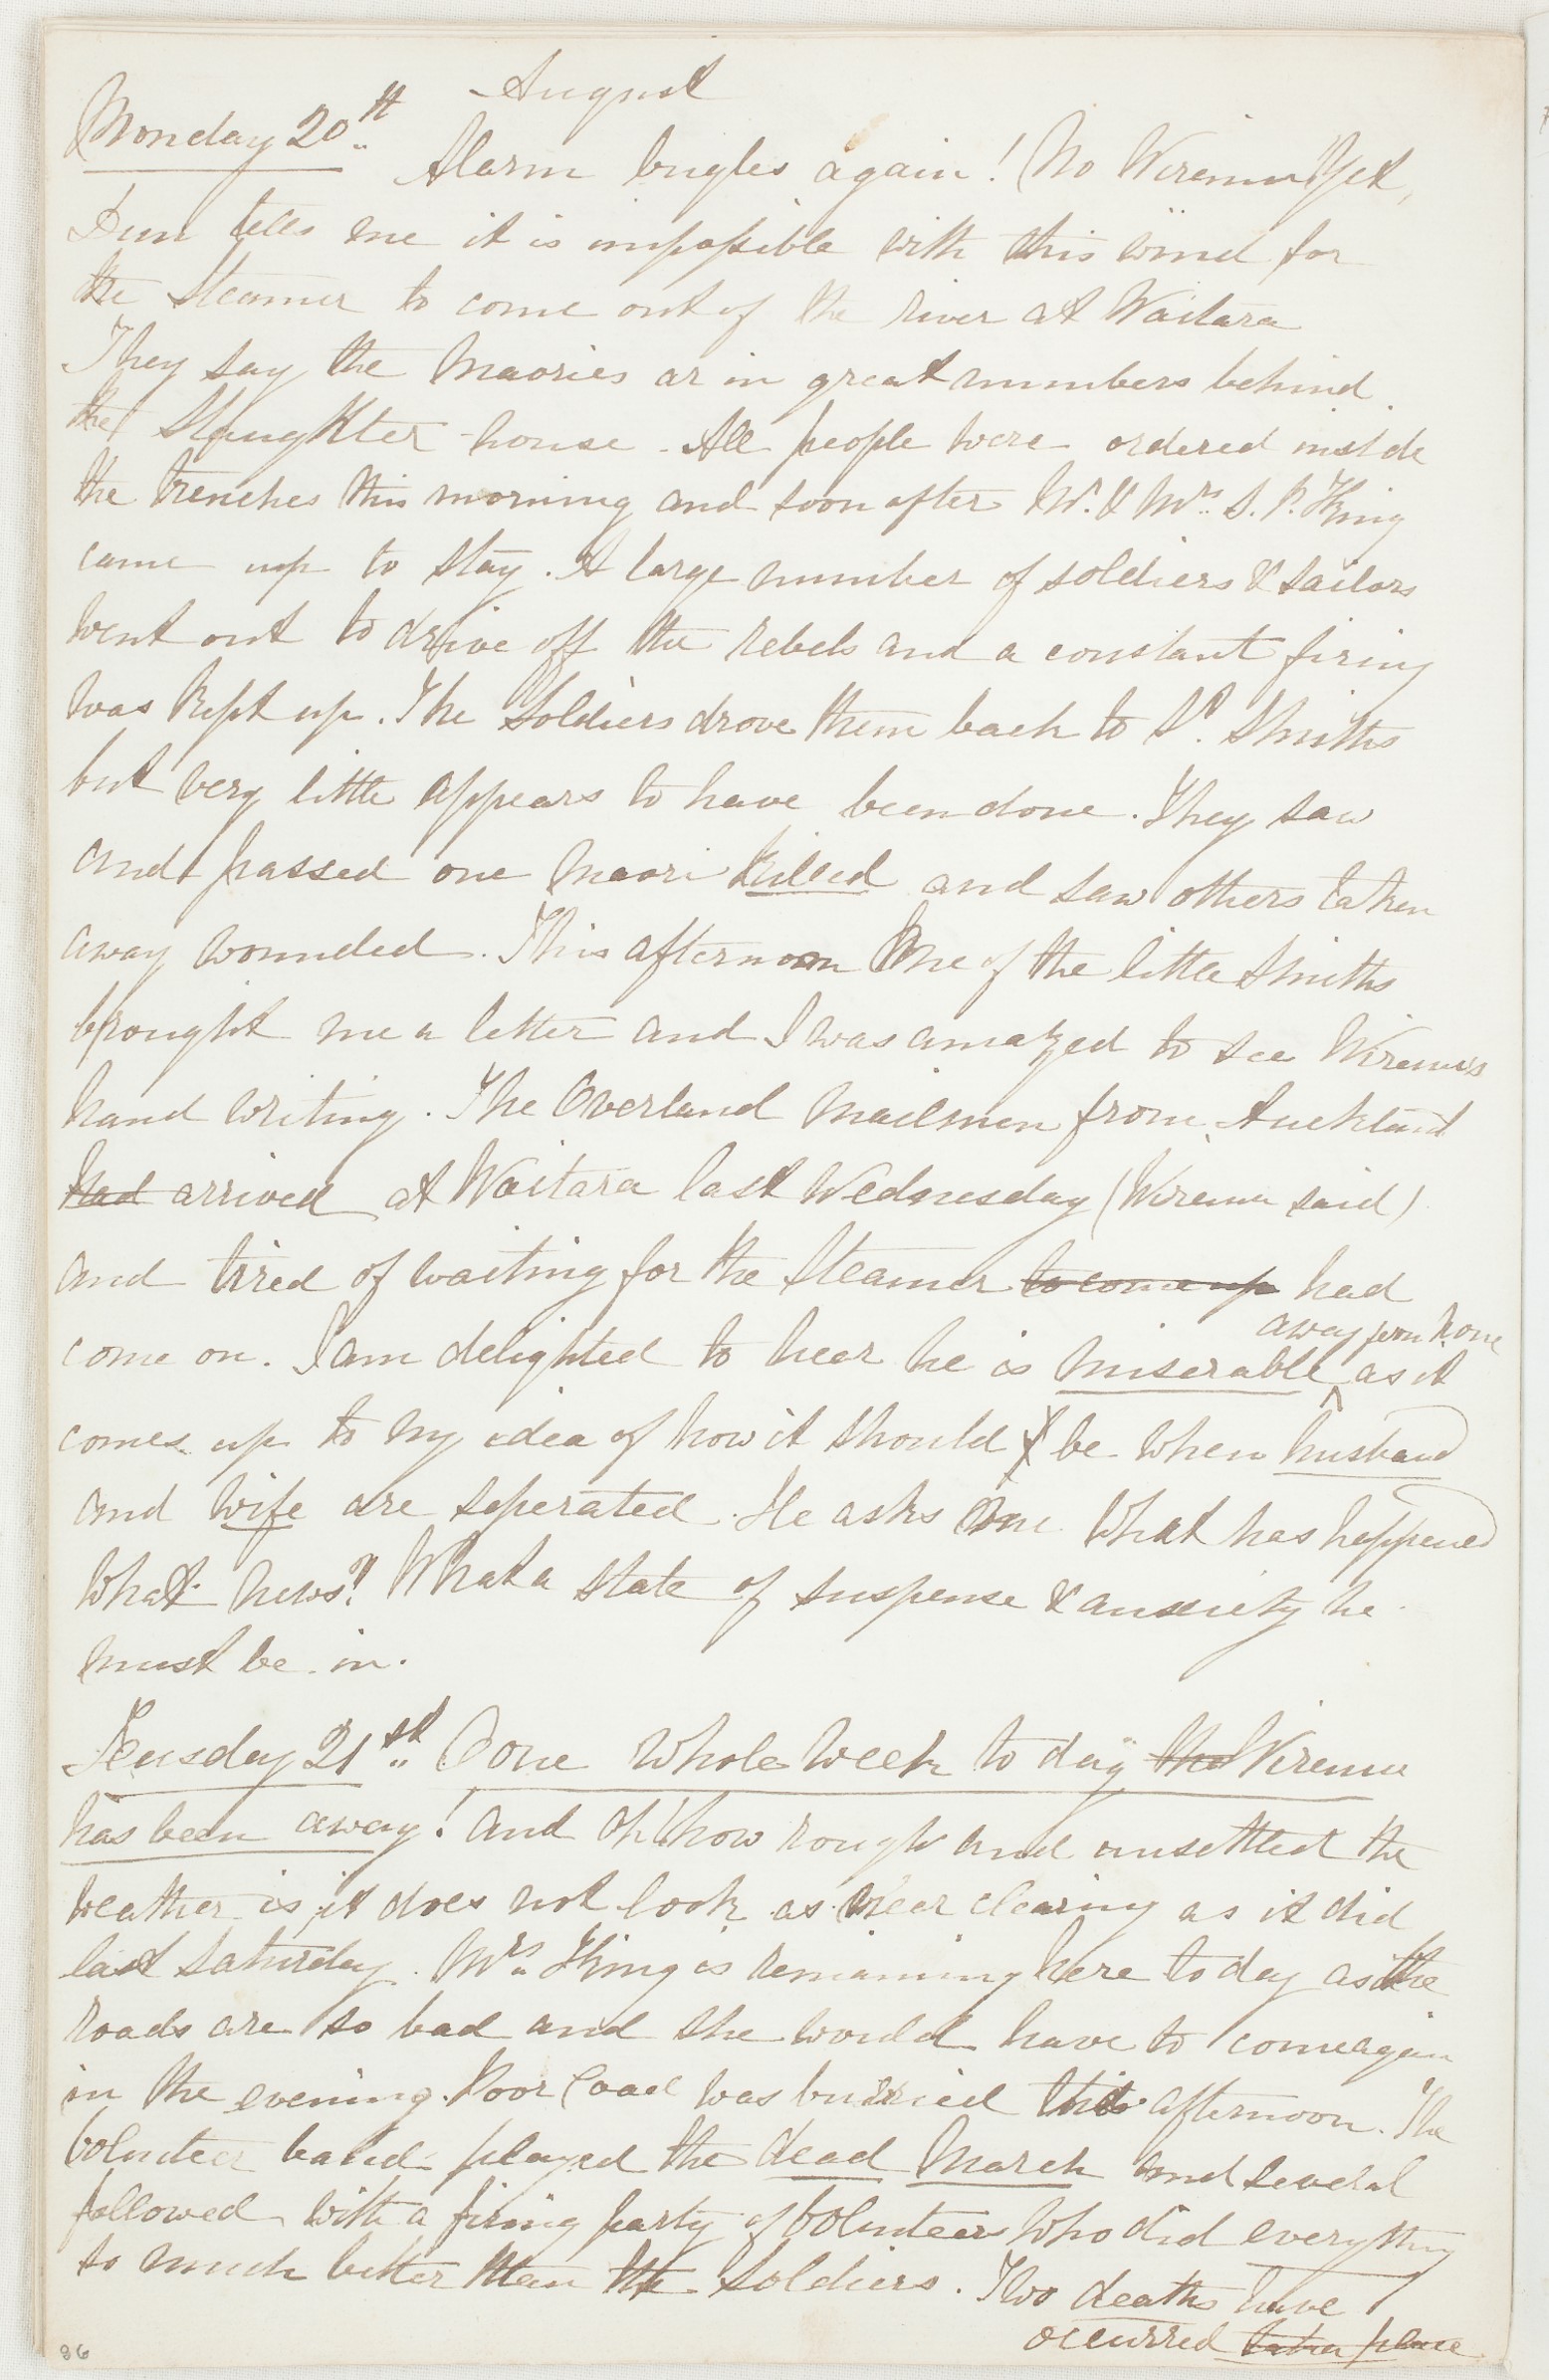 August
Monday 20th Alarm bugles again! No Wiremu yet,
Dun tells me it is impossible with this wind for
the Steamer to come out of the river at Waitara
They say the Maories ar in great numbers behind
the Slaughter-house. All people were ordered inside
the trenches this morning and soon after Mr. & Mrs. S. P. King
came up to stay. A large number of soldiers & sailors
went out to drive off the rebels and a constant firing
was kept up. The Soldiers drove them back to Sl. Smiths
but very little appears to have been done. They saw
and passed one Maori killed and saw others taken
away wounded. This afternoon One of the little Smiths
brought me a letter and I was amazed to see Wiremu's
hand writing. The Overland Mailmen from Auckland
had arrived at Waitara last Wednesday (Wiremu said)
and tired of waiting for the Steamer to come up had
come on. I am delighted to hear he is miserable away from home as it
comes up to my idea of how it should be when husband
and wife are seperated. He asks me What has happened
What news?! What a state of suspense & anxiety he
must be in.
Teusday 21st. One whole week to day the Wiremu
has been away! and oh! how rough and unsettled the
weather is, it does not look as near clearing as it did
last Saturday. Mrs. King is remaining here to day as the
roads are so bad and she would have to come again
in the evening. Poor Coad was buried this afternoon. The
Volunteer band played the dead March and several
followed with a firing party of Volunteers who did everything
so much better than the Soldiers. Two deaths have
occurred taken place
86